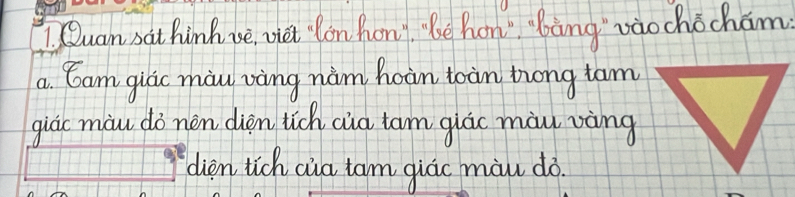 1. Quan sát hình vẽ, viết "lớn hơn", "bé hơn", "bằng" vào chỗ chấm:
a. Tam giác màu vàng nằm hoàn toàn trong tam
giác màu đỏ nên diện tích của tam giác màu vàng
diện tích của tam giác màu đỏ.